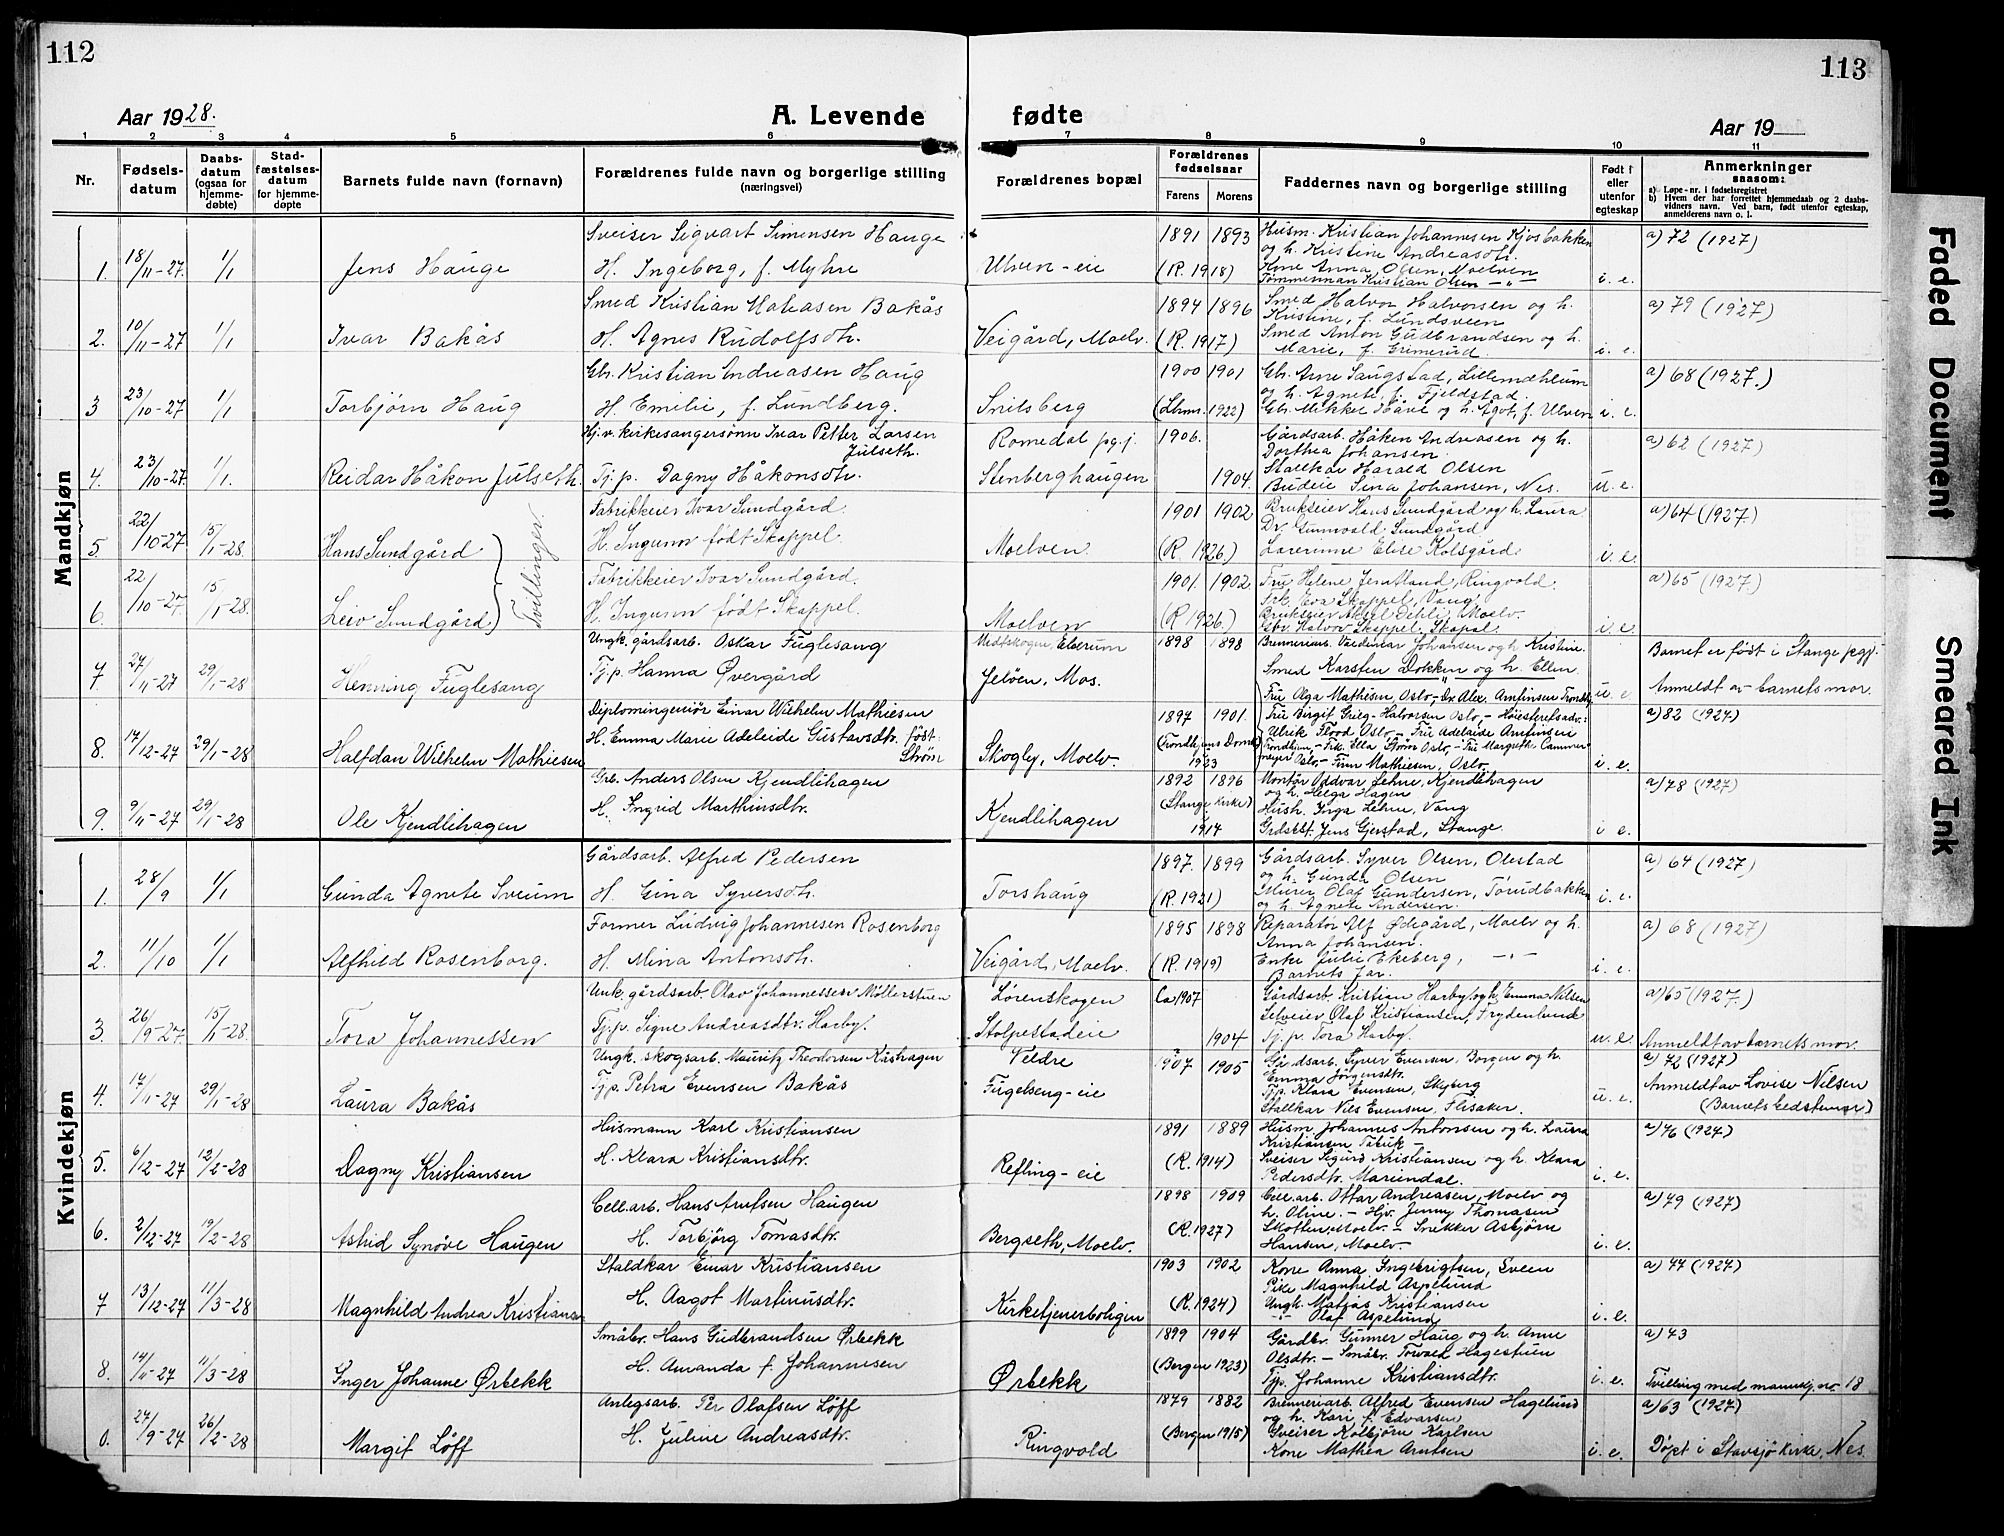 112
113
Aar 1928.
A. Levende
fødte
Aar 19
1 2 3 4 5 6 7 8 9 10 11
Nr.
Fødsels-
datum
Daabs-
datum
(ogsaa for
hjemme-
døbte)
Stad-
fæstelses-
datum
for hjemme-
døpte
Barnets fulde navn (fornavn)
Forældrenes fulde navn og borgerlige stilling
(næringsvei)
Forældrenes bopæl
Forældrenes
fødselsaar
Farens Morens
Faddernes navn og borgerlige stilling
Født i
eller
utenfor
egteskap
Anmerkninger
saasom:
a) Løpe-nr. i fødselsregistret
b) Hvem der har forrettet hjemmedaab og 2 daabs-
vidners navn. Ved barn, født utenfor egteskap,
anmelderens navn o. l.
Mandkjøn
1. 18/11-27 1/1 Jens Hauge
Sveiser Sigvart Simensen Hauge
H. Ingeborg, f. Myhre
Ulven-eie
1891 1893
(R. 1918)
Husm. Kristian Johannesen Kjosbakken
og h. Kristine Andreasdtr.
Kone Anna Olsen, Moelven
Tømmerman Kristian Olsen -"-
i. e.
a) 72 (1927)
2. 10/11-27 1/1 Ivar Bakås
Smed Kristian Mathiasen Bakås
H. Agnes Rudolfsdtr.
Veigård, Moelv.
1894 1896
(R. 1917)
Smed Halvor Halvorsen og h.
Kristine, f. Lundsveen
Smed Anton Gudbrandsen og h.
Marie, f. Grimerud.
i. e.
a) 79 (1927)
3 23/10-27 1/1 Torbjørn Haug
Gbr. Kristian Andreasen Haug
H. Emilie, f. Lundberg.
Snilsberg
1900 1901
(Lhmr. 1922)
Gbr. Arne Saugstad, Lillemæhlum
og h. Agnete, f. Fjeldstad.
Gbr. Mikkel Håve og h. Agot, f. Ulven
i. e.
a) 68 (1927.)
4. 23/10-27 1/1. Reidar Håkon Julseth.
Hj.v. kirkesangersønn Ivar Petter Larsen
Julseth.
Tj.p. Dagny Håkonsdtr.
Romedal pg.j.
Stenberghaugen
1906.
1904.
Gårdsarb. Håken Andreasen og h.
Dorthea Johansen.
Stallkar Harald Olsen
Budeie Sina Johansen, Nes.
u. e.
a) 62 (1927)
5 22/10-27 15/1-28. Hans Sundgård
Tvillinger.
Fabrikkeier Ivar Sundgård.
H. Ingunn født Skappel.
Moelven.
1901 1902
(R. 1926.)
Brukseier Hans Sundgård og h. Laura
Dr. Gunvald Sundgård
Lærerinne Elise Kolsgård
i. e.
a) 64 (1927)
6. 22/10-27. 15/1-28. Leiv Sundgård
Fabrikkeier Ivar Sundgård.
H. Ingunn født Skappel.
Moelven
1901. 1902.
(R 1926.)
Fru Helene Jenstland, Ringvold.
Frk. Eva Skappel, Vang
Brukseier Aksel Dehli, Moelv.
Gbr. Halvor Skappel, Skapal.
i. e.
a) 65 (1927)
7. 27/11-27 29/1-28 Henning Fuglesang
Ungk. gårdsarb. Oskar Fuglesang
Tj.p. Hanna Øvergård
Midtskogen, Elverum
Jeløen, Mos.
1898 1898
Brenneriarb. Valdemar Johansen og h. Kristine.
Smed Karsten Dokken og h. Ellen
u. e.
Barnet er født i Stange pgj.
Anmeldt av barnets mor.
8. 17/12-27 29/1-28 Halfdan Wilhelm Mathiesen
Diplomingeniør Einar Wilhelm Mathiesen
H. Emma Marie Adeleide Gustavsdtr. født
Strøm
Skogly, Moelv.
1897 1901.
(Trondhjems Domk.
1923
Fru Olga Mathisen, Oslo, - Dr. Alex. Arnfinsen Trondhj.
Fru Birgit Grieg-Halvorsen Oslo, - Høiesteretsadv.:
Ulrik Flood Oslo - Fru Adelaide Arnfinsen
Trondheim, - Frk. Ella Strøm Oslo, - Fru Margrethe Cammer
meyer Oslo, - Finn Mathiesen, Oslo.
i. e.
a) 82 (1927)
9. 9/11-27 29/1-28 Ole Kjendlihagen
Grb. Anders Olsen Kjendlihagen
H. Ingrid Marthinsdtr.
Kjendlihagen
1892 1896
(Stange kirke)
1917
Montør Oddvar Lehne, Kjendlihagen
og h. Helga Hagen
Hush. Inga Lehne, Vang
Grdsbst. Jens Gjerstad, Stange.
i e.
a) 78 (1927)
Kvindekjøn
1. 28/9 1/1 Gunda Agnete Sveum
Gårdsarb. Alfred Pedersen
H. Gina Syversdtr.
Torshaug
1897. 1899
(R. 1921)
Gårdsarb. Syver Olsen, Olestad
og h. Gunda Olsen
Murer Olaf Gundersen, Torudbakken
og h. Agnete Andersen.
i. e.
a) 64 (1927)
2. 11/10 1/1 Alfhild Rosenborg.
Former Ludvig Johannesen Rosenborg
H. Mina Antonsdtr.
Veigård, Moelv.
1895 1898
(R. 1919)
Reparatør Alf Ødegård, Moelv og h.
Anna Johansen.
Enke Julie Ekeberg, -"-
Barnets far.
i. e.
a) 68 (1927)
3 26/9-27. 15/1-28. Tora Johannessen
Unk. gårdsarb. Olav Johannessen Møllerstuen
Tj.p. Signe Andreasdtr. Harby.
Lørenskogen
Stolpestadeie
Ca 1907
1904
Gårdsarb. Kristian Harby og h. Emma Nilsen
Selveier Olaf Kristiansen, Frydenlund
Tj. p. Tora Harby.
u. e.
a) 65 (1927.)
Anmeldt av barnets mor.
4. 17/11-27 29/1-28 Laura Bakås
Ungk. skogsarb. Mauritz Theodorsen Kashagen
Tj.p. Petra Evensen Bakås
Veldre
Fugelseng-eie
1907 1905
Gårdsarb. Syver Evensen, Borgen og h.
Emma Jørgensdtr.
Tjp. Klara Evensen, Skyberg
Stallkar Nils Evensen, Flisaker.
u. e.
a) 72 (1927)
Anmeldt av Lovise Nilsen
(Barnets bedstemor)
5. 6/12-27 12/2-28 Dagny Kristiansen
Husmann Karl Kristiansen
H. Klara Kristiansdtr.
Refling-eie
1891 1889
(R. 1914)
Husm. Johannes Antonsen og h. Laura
Kristiansen Tabuk -
Sveiser Sigurd Kristiansen og h. Klara
Pedersdtr. Mariendal.
i. e.
a) 76 (1927)
6. 2/12-27 19/2-28 Astrid Synøve Haugen
Cell.arb. Hans Arnfsen Haugen
H. Torbjörg Tomasdtr.
Bergseth, Moelv.
1898 1909
(R. 1927)
Cell.arb. Ottar Andreasen, Moelv og
h. Oline. - Hjv. Jenny Thomasen
Skotten, Moelv. - Snekker Asbjørn
Hansen, Moelv.
i. e.
a) 79 (1927)
7 13/12-27 11/3-28 Magnhild Andrea Kristiansen
Staldkar Einar Kristiansen
H. Aagot Martinusdtr.
Kirketjenerboligen
1903 1902
(R. 1924)
Kone Anna Ingebrigtsen, Sveen
Pike Magnhild Aspelund
Ungk. Matias Kristiansen
-"- Olaf Aspelund
i. e.
a) 77 (1927)
8. 14/11-27 11/3-28 Inger Johanne Ørbekk
Småbr. Hans Gudbrandsen Ørbekk
H. Amanda f. Johannesen
Ørbekk
1899 1904
(Bergen 1923)
Gårdbr. Gunner Haug og h. Anne
Olsdtr. - Småbr. Torvald Hagestuen
Tjp. Johanne Kristiansdtr.
i. e.
a) 43
Tvilling med mannkj. nr. 18
27/9-27 26/2-28 Margit Løff
Anlegsarb. Per Olafsen Løff
H. Juline Andreasdtr.
Ringvold
1879 1882
(Bergen 1915)
Brenneriarb. Alfred Evensen Hagelund
og h. Kari f. Edvarsen
Sveiser Kolbjørn Karlsen
Kone Mathea Arntsen
i. e.
a) 63 (1927)
Døpt i Stavsjø kirke, Nes.
Faded Document
Smeared Ink